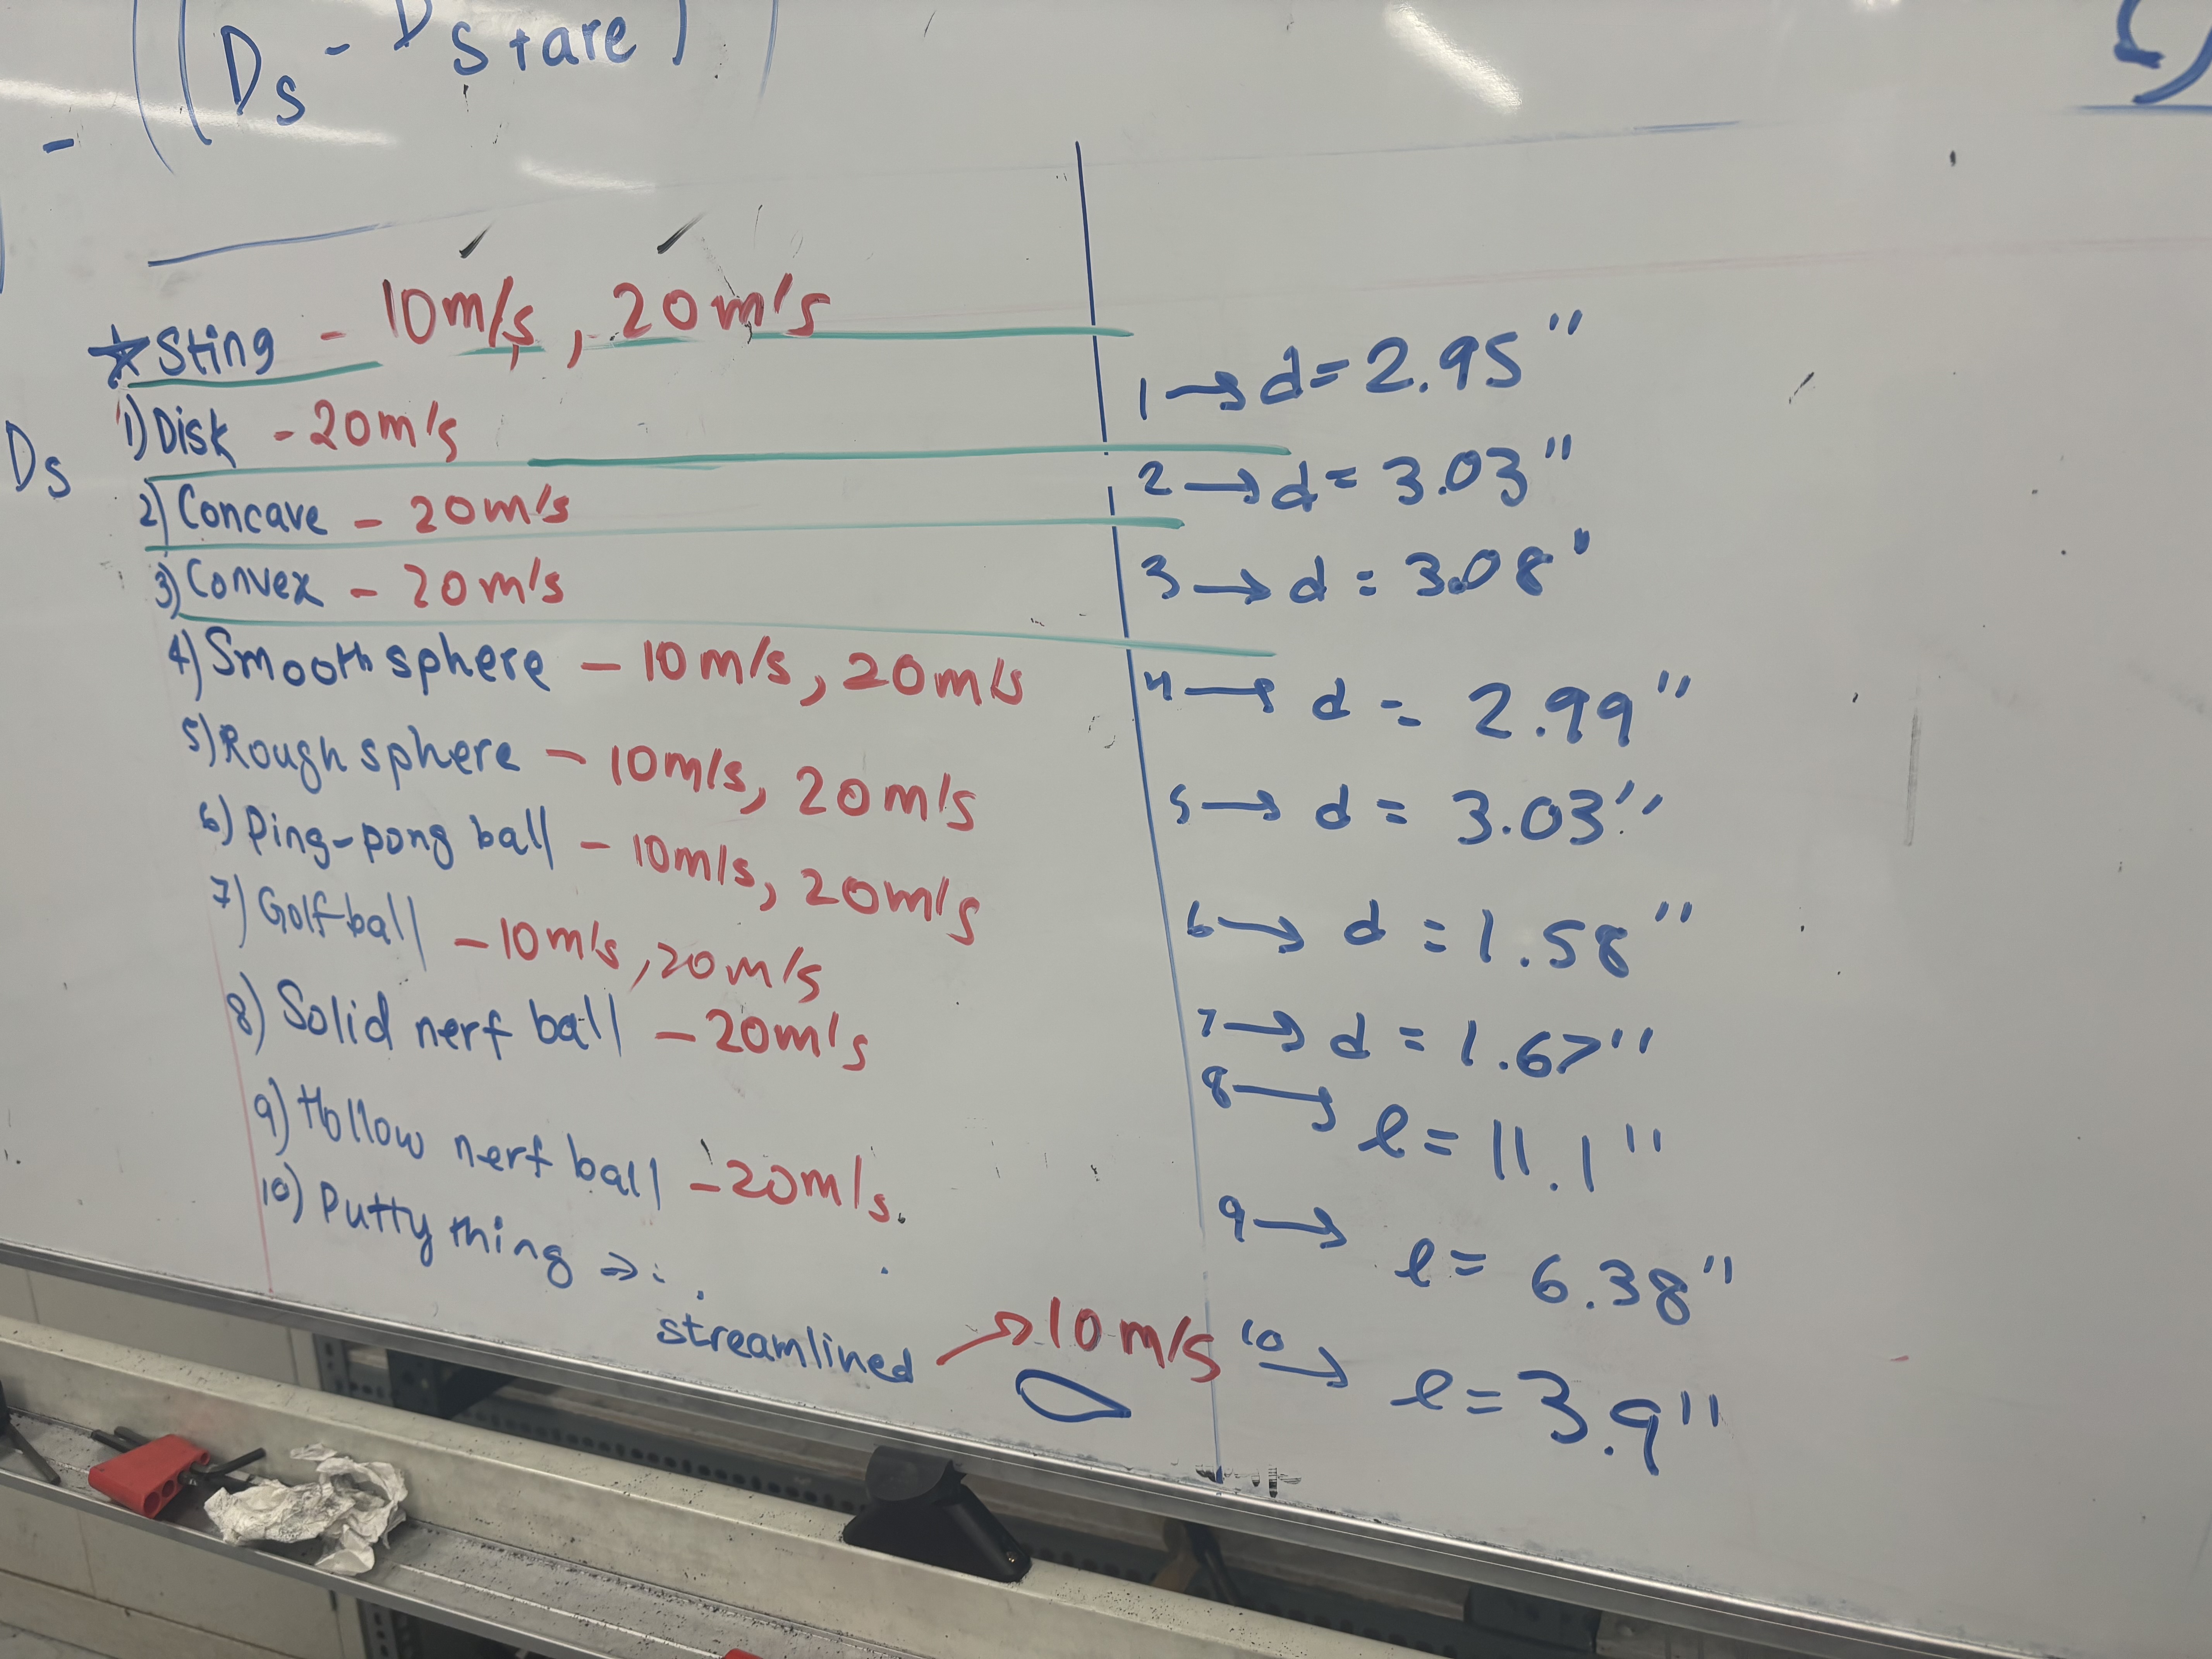 - ((Ds - Ds tare)
☆ Sting - 10m/s, 20m/s
Ds
1) Disk - 20m/s
2) Concave - 20m/s
3) Convex - 20m/s
4) Smooth sphere - 10m/s, 20m/s
5) Rough sphere - 10m/s, 20m/s
6) Ping-pong ball - 10m/s, 20m/s
7) Golf ball - 10m/s, 20m/s
8) Solid nerf ball - 20m/s
9) Hollow nerf ball - 20m/s
10) Putty thing →
streamlined → 10m/s
1 → d= 2.95"
2 → d= 3.03"
3 → d= 3.08'
4 → d= 2.99"
5 → d= 3.03"
6 → d= 1.58"
7 → d= 1.67"
8 → l= 11.1"
9 → l= 6.38"
10 → l= 3.9"